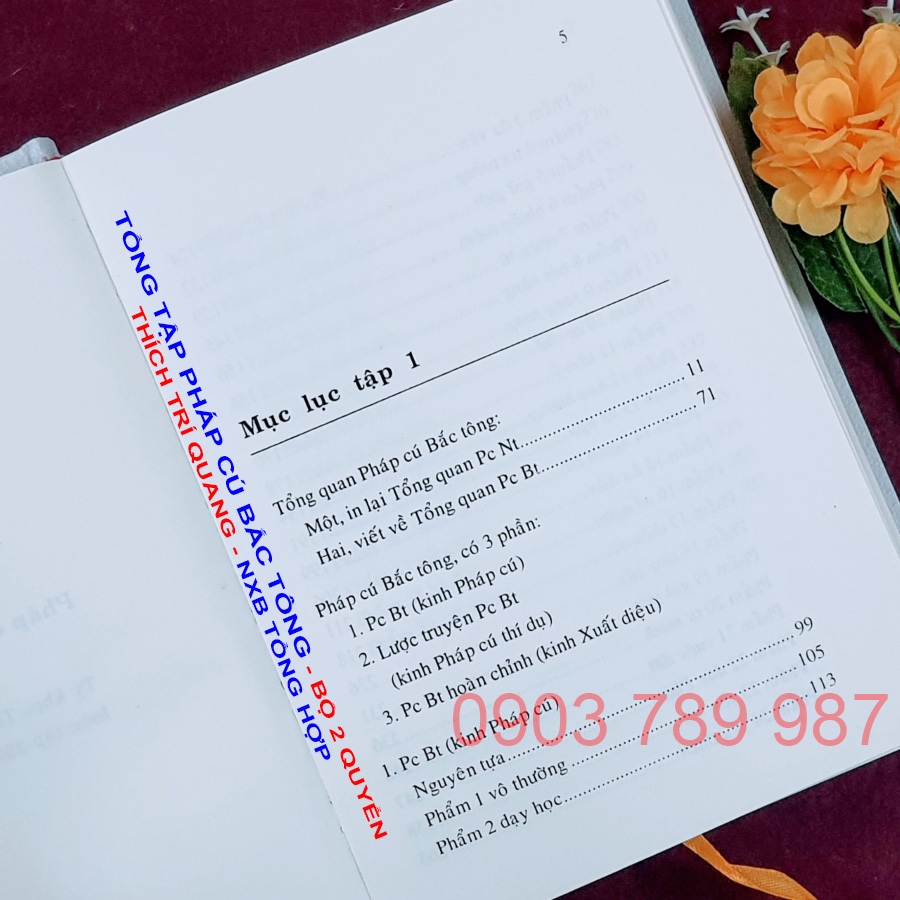 5
Mục lục tập 1
Tổng quan Pháp cú Bắc tông:
Một, in lại Tổng quan Pc Nt..............................11
Hai, viết về Tổng quan Pc Bt............................71
Pháp cú Bắc tông, có 3 phần:
1. Pc Bt (kinh Pháp cú)
2. Lược truyện Pc Bt
(kinh Pháp cú thí dụ)
3. Pc Bt hoàn chỉnh (kinh Xuất diệu)
1. Pc Bt (kinh Pháp cú)
Nguyên tựa....................................................99
Phẩm 1 vô thường ........................................105
Phẩm 2 dạy học............................................113
TỔNG TẬP PHÁP CÚ BẮC TÔNG - BỘ 2 QUYỂN
THÍCH TRÍ QUANG - NXB TỔNG HỢP
0903 789 987